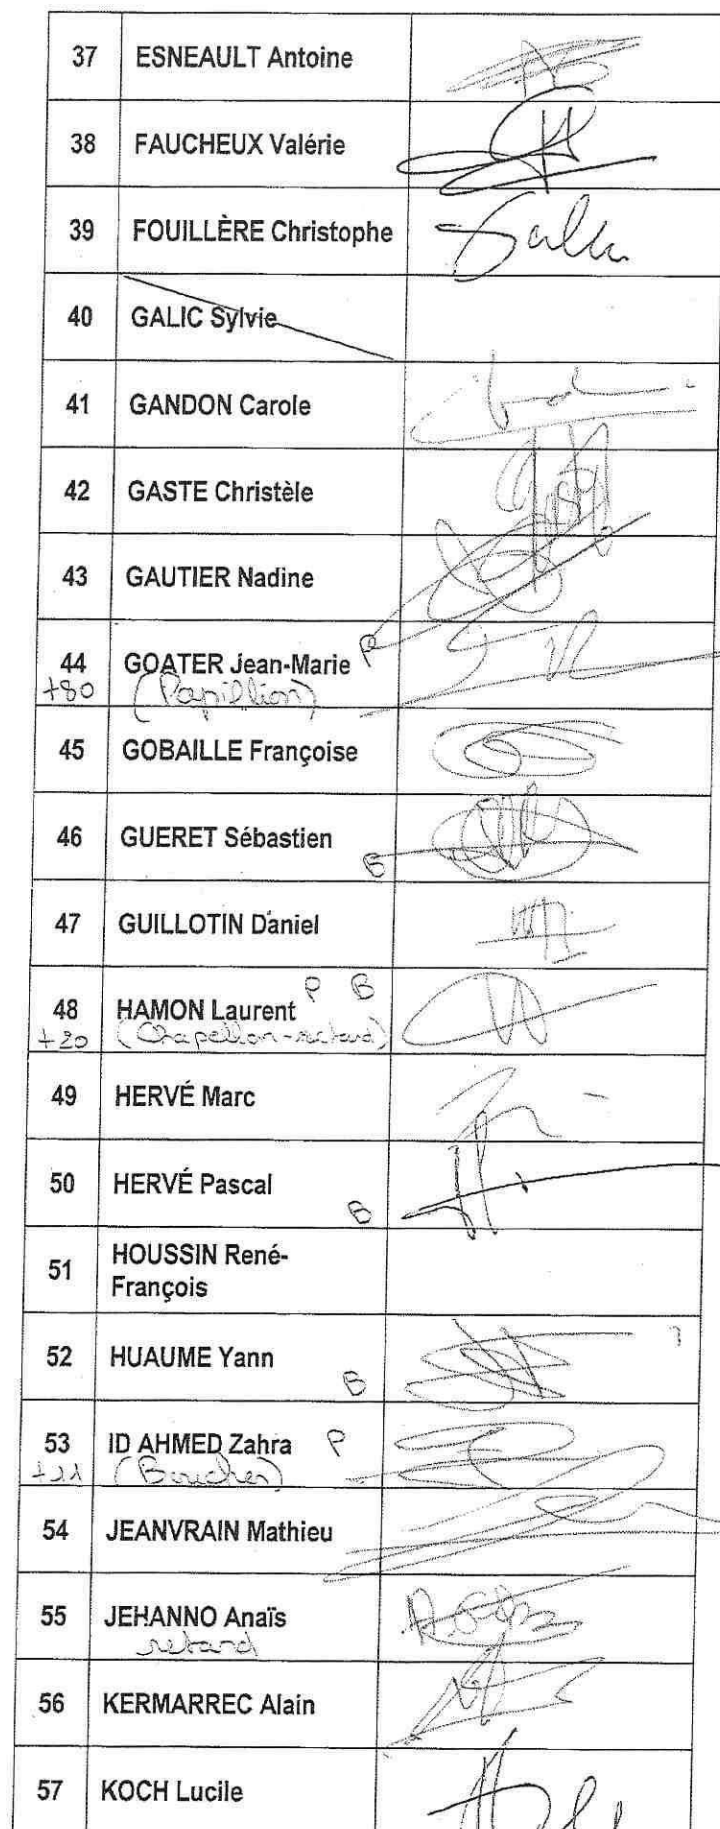 37 ESNEAULT Antoine
38 FAUCHEUX Valérie
39 FOUILLÈRE Christophe
40 GALIC Sylvie
41 GANDON Carole
42 GASTE Christèle
43 GAUTIER Nadine
44 GOATER Jean-Marie P
+80 (Papillion)
45 GOBAILLE Françoise
46 GUERET Sébastien
B
47 GUILLOTIN Daniel
P B
48 HAMON Laurent
+20 (Chapellon-retard)
49 HERVÉ Marc
50 HERVÉ Pascal
B
51 HOUSSIN René-
François
52 HUAUME Yann
B
53 ID AHMED Zahra P
(Boucher)
54 JEANVRAIN Mathieu
55 JEHANNO Anaïs
retard
56 KERMARREC Alain
57 KOCH Lucile